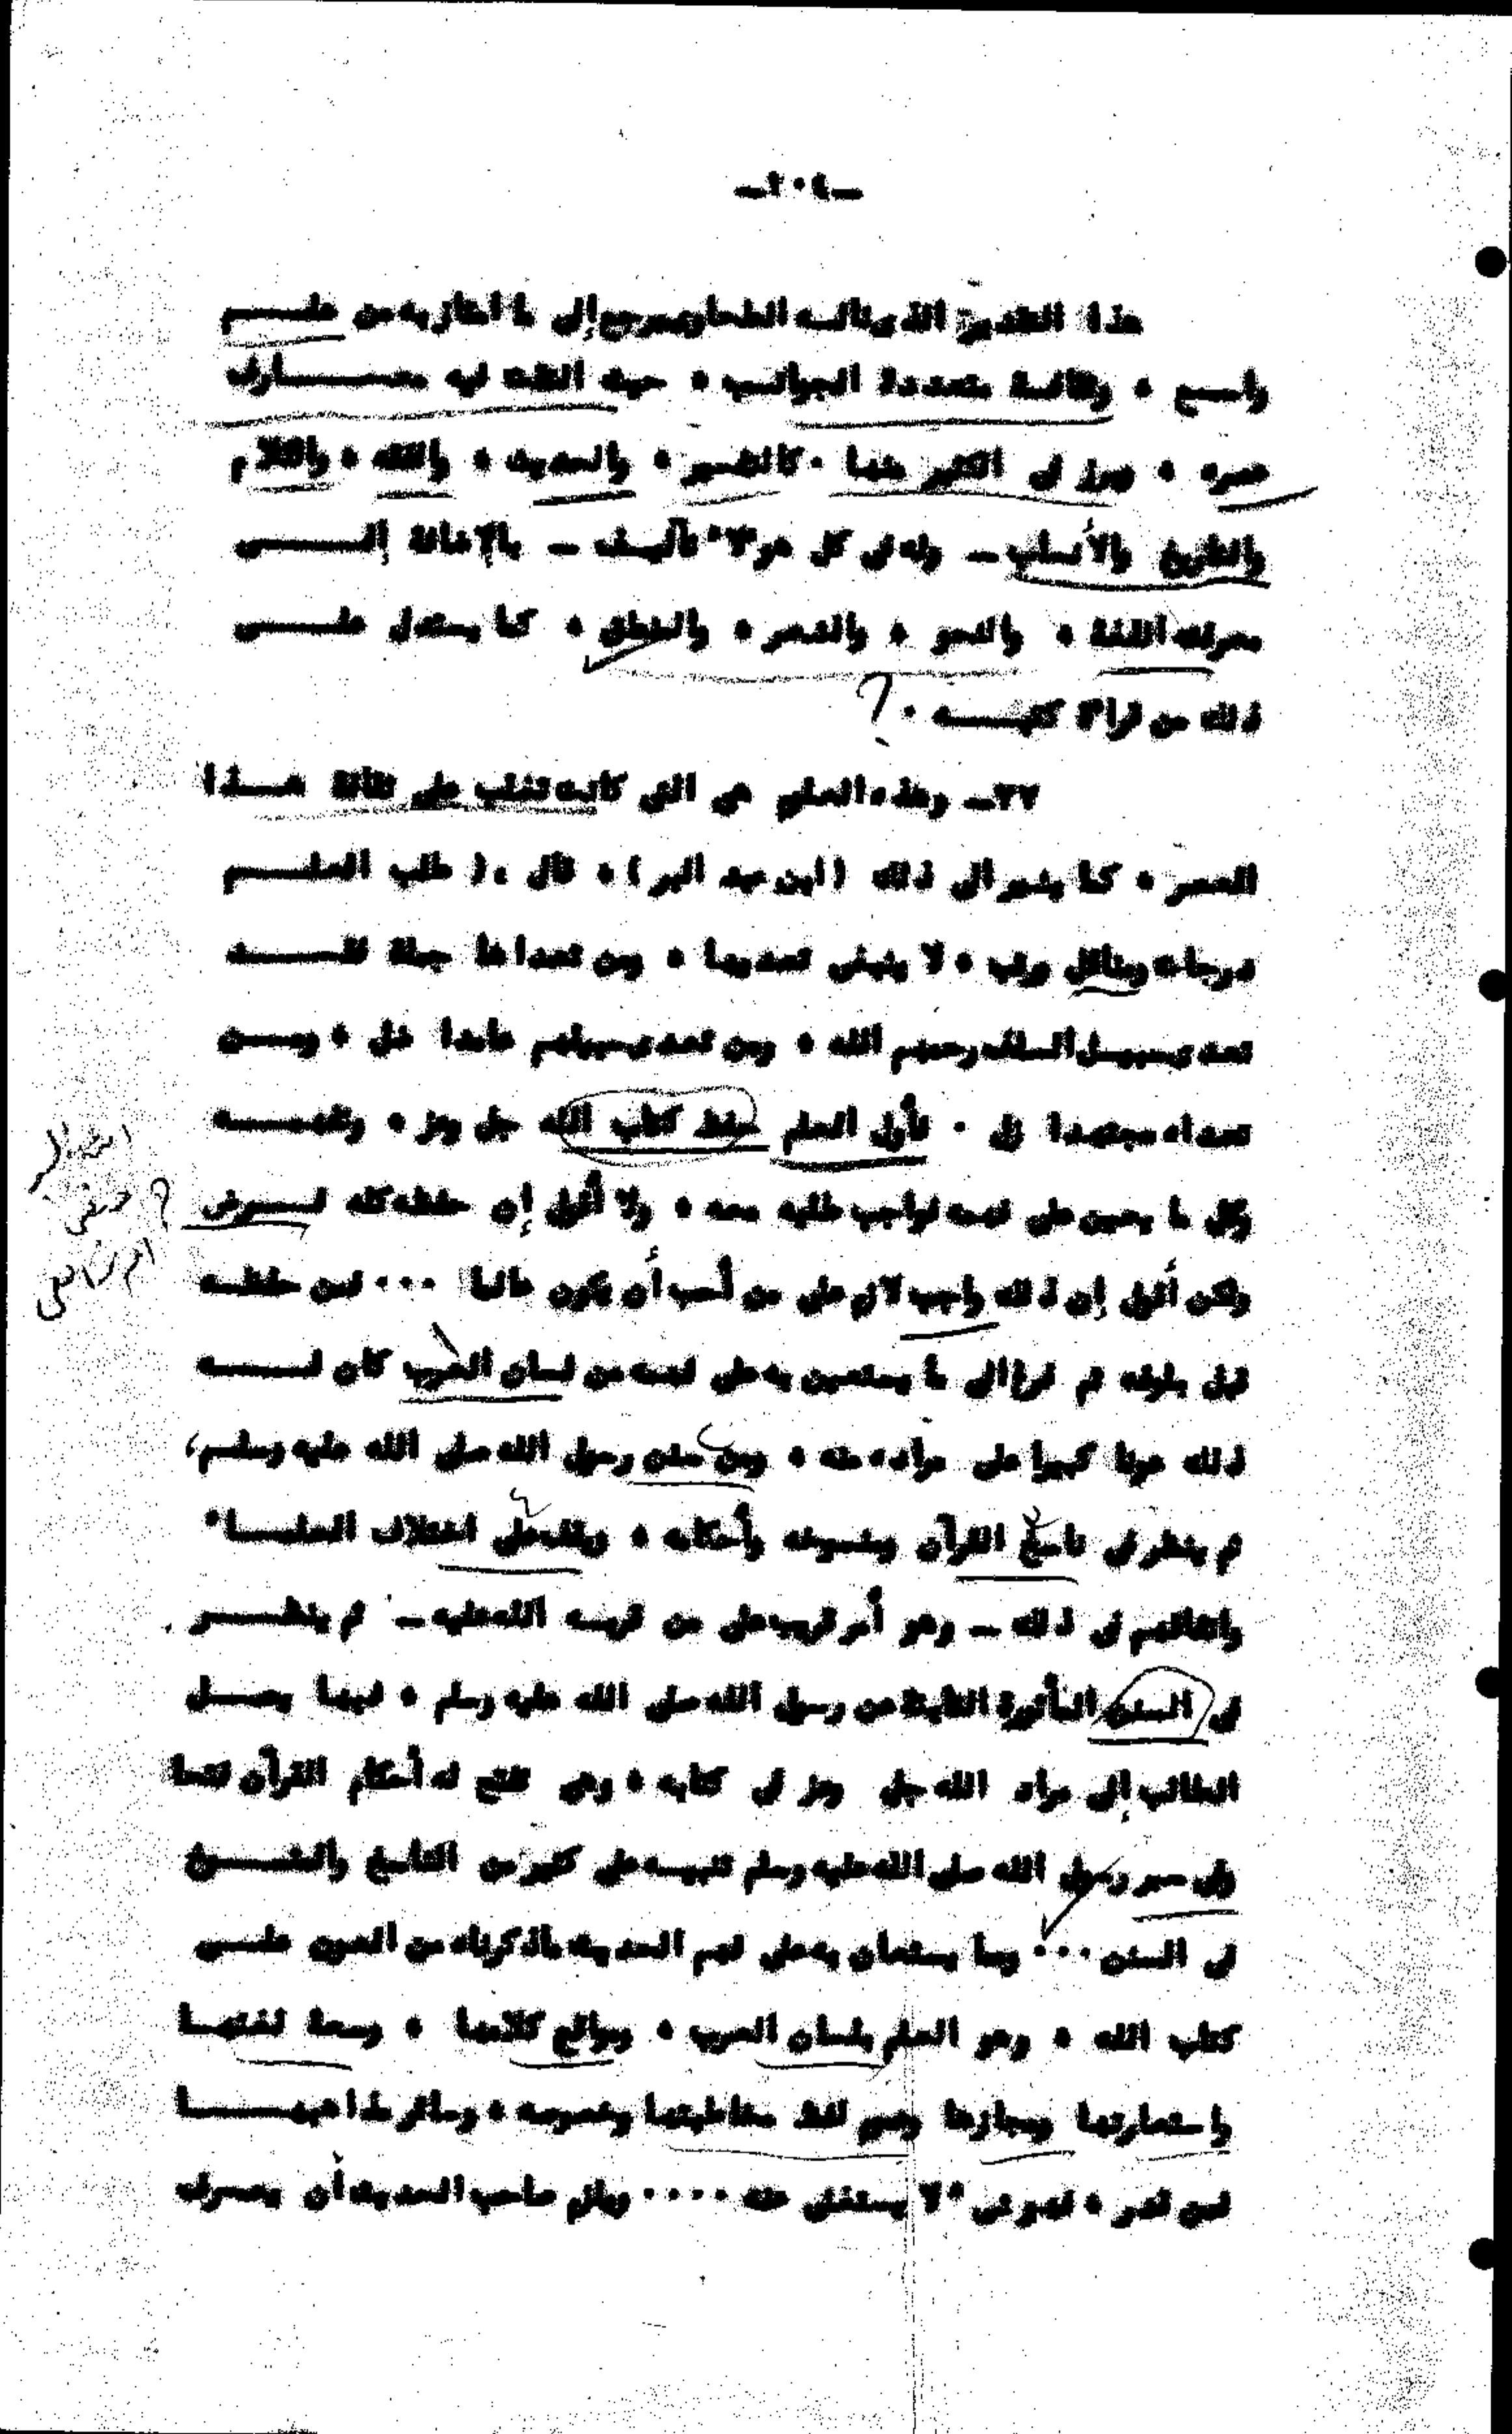 ـ٢٠٤ـ
هذا التقدير الذى ناله الطحاوى يرجع إلى ما امتاز به من علـــم
واسع ، وثقافة متعددة الجوانب ، حيث التقت فيه معـــارف
عصره ، وبرز فى الكثير منها . كالتفسير ، والحديث ، والفقه ، والكلام
والتاريخ والأنساب ـ وله فى كل هؤلاء تآليف ـ بالإضافة إلـــى
معرفته اللغة ، والنحو ، والشعر ، والمنطق ، كما يستدل علـــى
ذلك من قراءة كتبـــه . ?
٢٧ـ وهذه العلوم هى التى كانت تغلب على ثقافة هـــذا
العصر ، كما يشير الى ذلك (ابن عبد البر) ، قال : ( طلب العلـــم
درجات ومناقل ورتب ، لا ينبغى تعديها ، ومن تعداها جملة فقـــد
تعدى سبيل السلف رحمهم الله ، ومن تعدى سبيلهم عامدا ضل ، ومـــن
تعداه مجتهدا زل . فأول العلم حفظ كتاب الله جل وعز ، وتفهمـــه
وكل ما يعين على فهمه فواجب طلبه معه ، ولا أقول إن حفظه كله فـــرض
ولكن أقول إن ذلك واجب لازم على من أحب أن يكون عالما ... فمن حفظـــه
قبل بلوغه ثم فرغ الى ما يستعين به على فهمه من لسان العرب كان لـــه
ذلك عونا كبيرا على مراده منه ، ومن سنن رسول الله صلى الله عليه وسلم،
ثم ينظر فى ناسخ القرآن ومنسوخه وأحكامه ، ويقف على اختلاف العلمـــاء
واتفاقهم فى ذلك ـ وهو أمر قريب على من قربه الله عليه ـ ثم ينظـــر
فى السنن المأثورة الثابتة عن رسول الله صلى الله عليه وسلم ، فبها يصـــل
الطالب إلى مراد الله جل وعز فى كتابه ، وهى تفتح له أحكام القرآن فتحا
وفى سير رسول الله صلى الله عليه وسلم تنبيه على كثير من الناسخ والمنســـوخ
فى السنن ... ومما يستعان به على فهم الحديث ماذكرناه من العون علـــى
كتاب الله ، وهو العلم بلسان العرب ، ومواقع كلامها ، وسعة لغتهـــا
واستعارتها ومجازها وعموم لفظ مخاطبتها وخصوصه ، وسائر مذاهبهـــا
لمن قدر ، فهو شىء لا يستغنى عنه .... ويلزم صاحب الحديث أن يعـــرف
ابن عبد البر
حنفى ?
أم شافعى